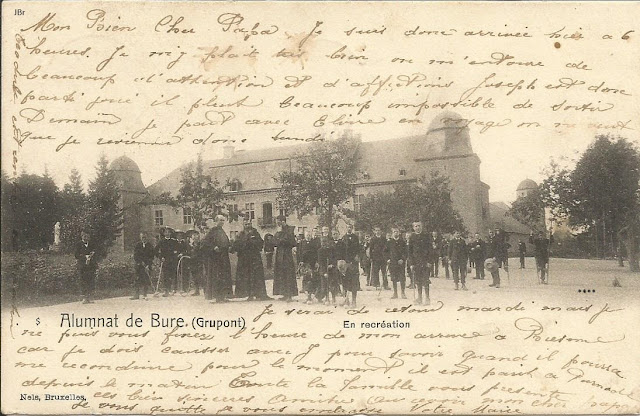 JBr
Mon Bien Cher Papa. Je suis donc arrivée hier a 6
heures. Je m'y plait très bien on m'entoure de
beaucoup d'attention et d'affections Joseph est donc
parti il pleut beaucoup impossible de sortir
Demain je part avec en voyage on veut
que je revienne donc lundi
Je serai de retour mardi mais je
ne puis vous fixer l'heure de mon arrivée a
car je dois causer avec J pour savoir quand il pourra
me reconduire pour le moment il est parti a
depuis le matin Toute la famille vous présente
ses bien sincères Amitiés Au revoir mon cher papa
Je vous quitte je vous embrasse Votre
$ Alumnat de Bure. (Grupont) En recréation
Nels, Bruxelles.